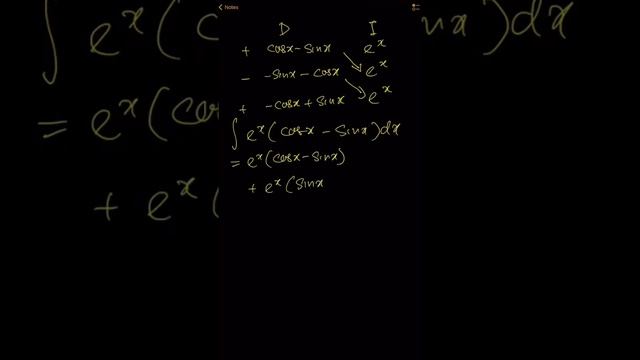 Notes
D I
+ cosx - sinx e^x
- -sinx - cosx e^x
+ -cosx + sinx e^x
∫ e^x (cosx - sinx) dx
= e^x (cosx - sinx)
+ e^x (sinx